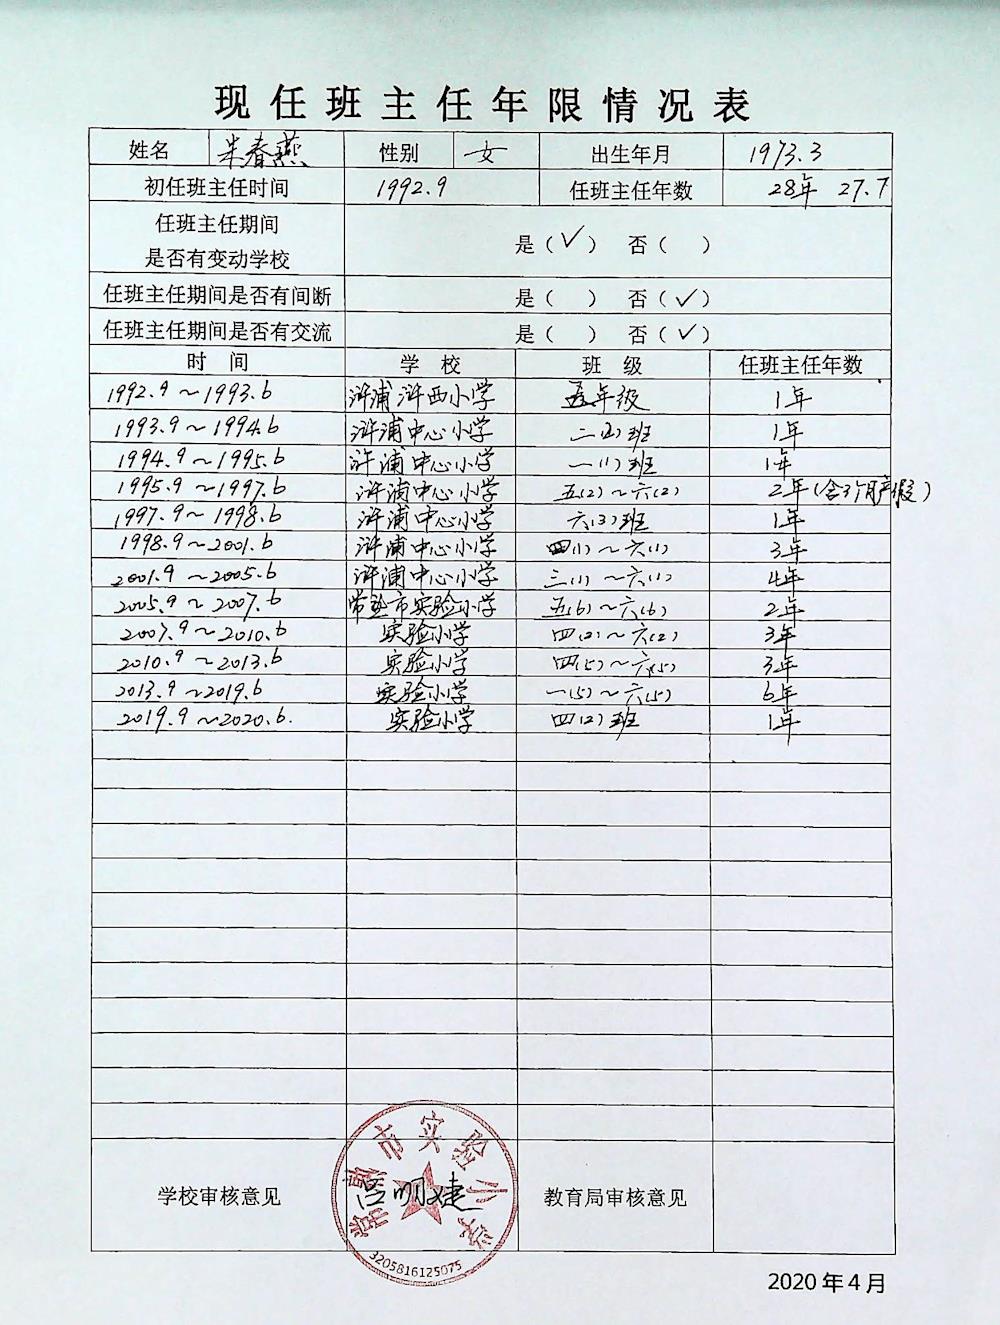 现任班主任年限情况表
姓名 朱春燕 性别 女 出生年月 1973.3
初任班主任时间 1992.9 任班主任年数 28年 27.7
任班主任期间
是否有变动学校 是（✓） 否（ ）
任班主任期间是否有间断 是（ ） 否（✓）
任班主任期间是否有交流 是（ ） 否（✓）
时 间 学 校 班 级 任班主任年数
1992.9～1993.6 浒浦浒西小学 五年级 1年
1993.9～1994.6 浒浦中心小学 二(四)班 1年
1994.9～1995.6 浒浦中心小学 一(1)班 1年
1995.9～1997.6 浒浦中心小学 五(2)～六(2) 2年(含3个月产假)
1997.9～1998.6 浒浦中心小学 六(3)班 1年
1998.9～2001.6 浒浦中心小学 四(1)～六(1) 3年
2001.9～2005.6 浒浦中心小学 三(1)～六(1) 4年
2005.9～2007.6 常熟市实验小学 五(6)～六(6) 2年
2007.9～2010.6 实验小学 四(2)～六(2) 3年
2010.9～2013.6 实验小学 四(5)～六(5) 3年
2013.9～2019.6 实验小学 一(5)～六(5) 6年
2019.9～2020.6. 实验小学 四(2)班 1年
常熟市实验小学
学校审核意见 吕明建 教育局审核意见
3205816125075
2020年4月